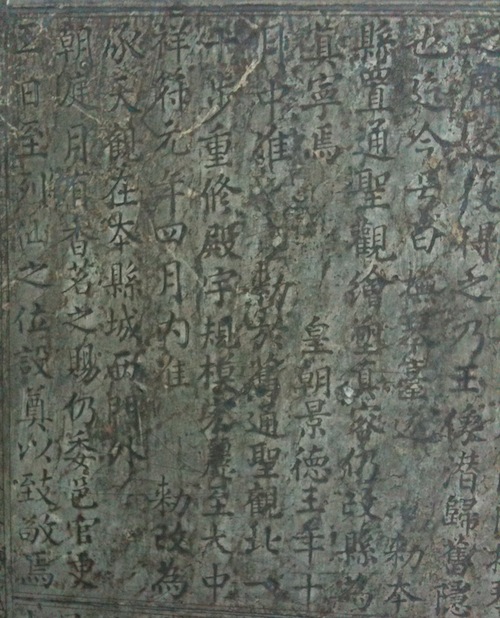 之復得之乃王僊潜歸舊隱
也迄今号曰撫琴臺 勅本
縣置通聖觀繪塑真容仍改縣爲
真寧焉 皇朝景德年十
月中准 勅於舊通聖觀北一
十步重修殿宇規模宏麗至大中
祥符元年四月内准 勅改爲
承天觀在本縣城西門外
朝庭月有香茗之賜仍委邑官吏
日至列仙之位設奠以致敬焉